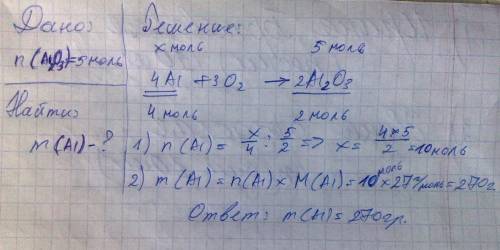 Дано:
n(Al₂O₃)=5моль
Найти:
m(Al)-?
Решение:
x моль 5 моль
4Al + 3O₂ → 2Al₂O₃
4 моль 2 моль
1) n(Al) = x/4 : 5/2 => x = 4*5/2 = 10моль
2) m(Al) = n(Al) x M(Al) = 10 моль x 27г/моль = 270г
Ответ: m(Al) = 270гр.